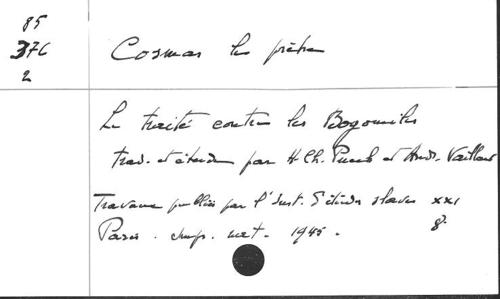 85
376
2
Cosmas le prêtre
Le traité contre les Bogomiles
trad. et étude par H Ch. Puech et And. Vaillant
Travaux publiés par l'Inst. d'études slaves XXI
Paris. Imp. nat. 1945. 8°